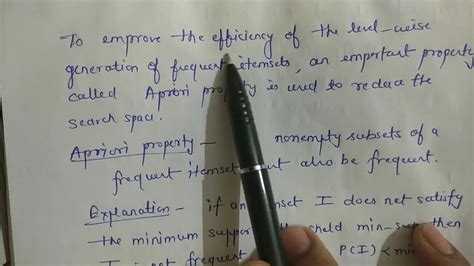 To emprove the efficiency of the level-weise
generation of frequent itemsets, an empertant property
called Apriori property is used to reduce the
search space.
Apriori property - nonempty subsets of a
frequent itemset must also be frequent.
Explanation - if an itemset I does not satisfy
the minimum support threshold min-sup, then
I is not frequent P(I) <